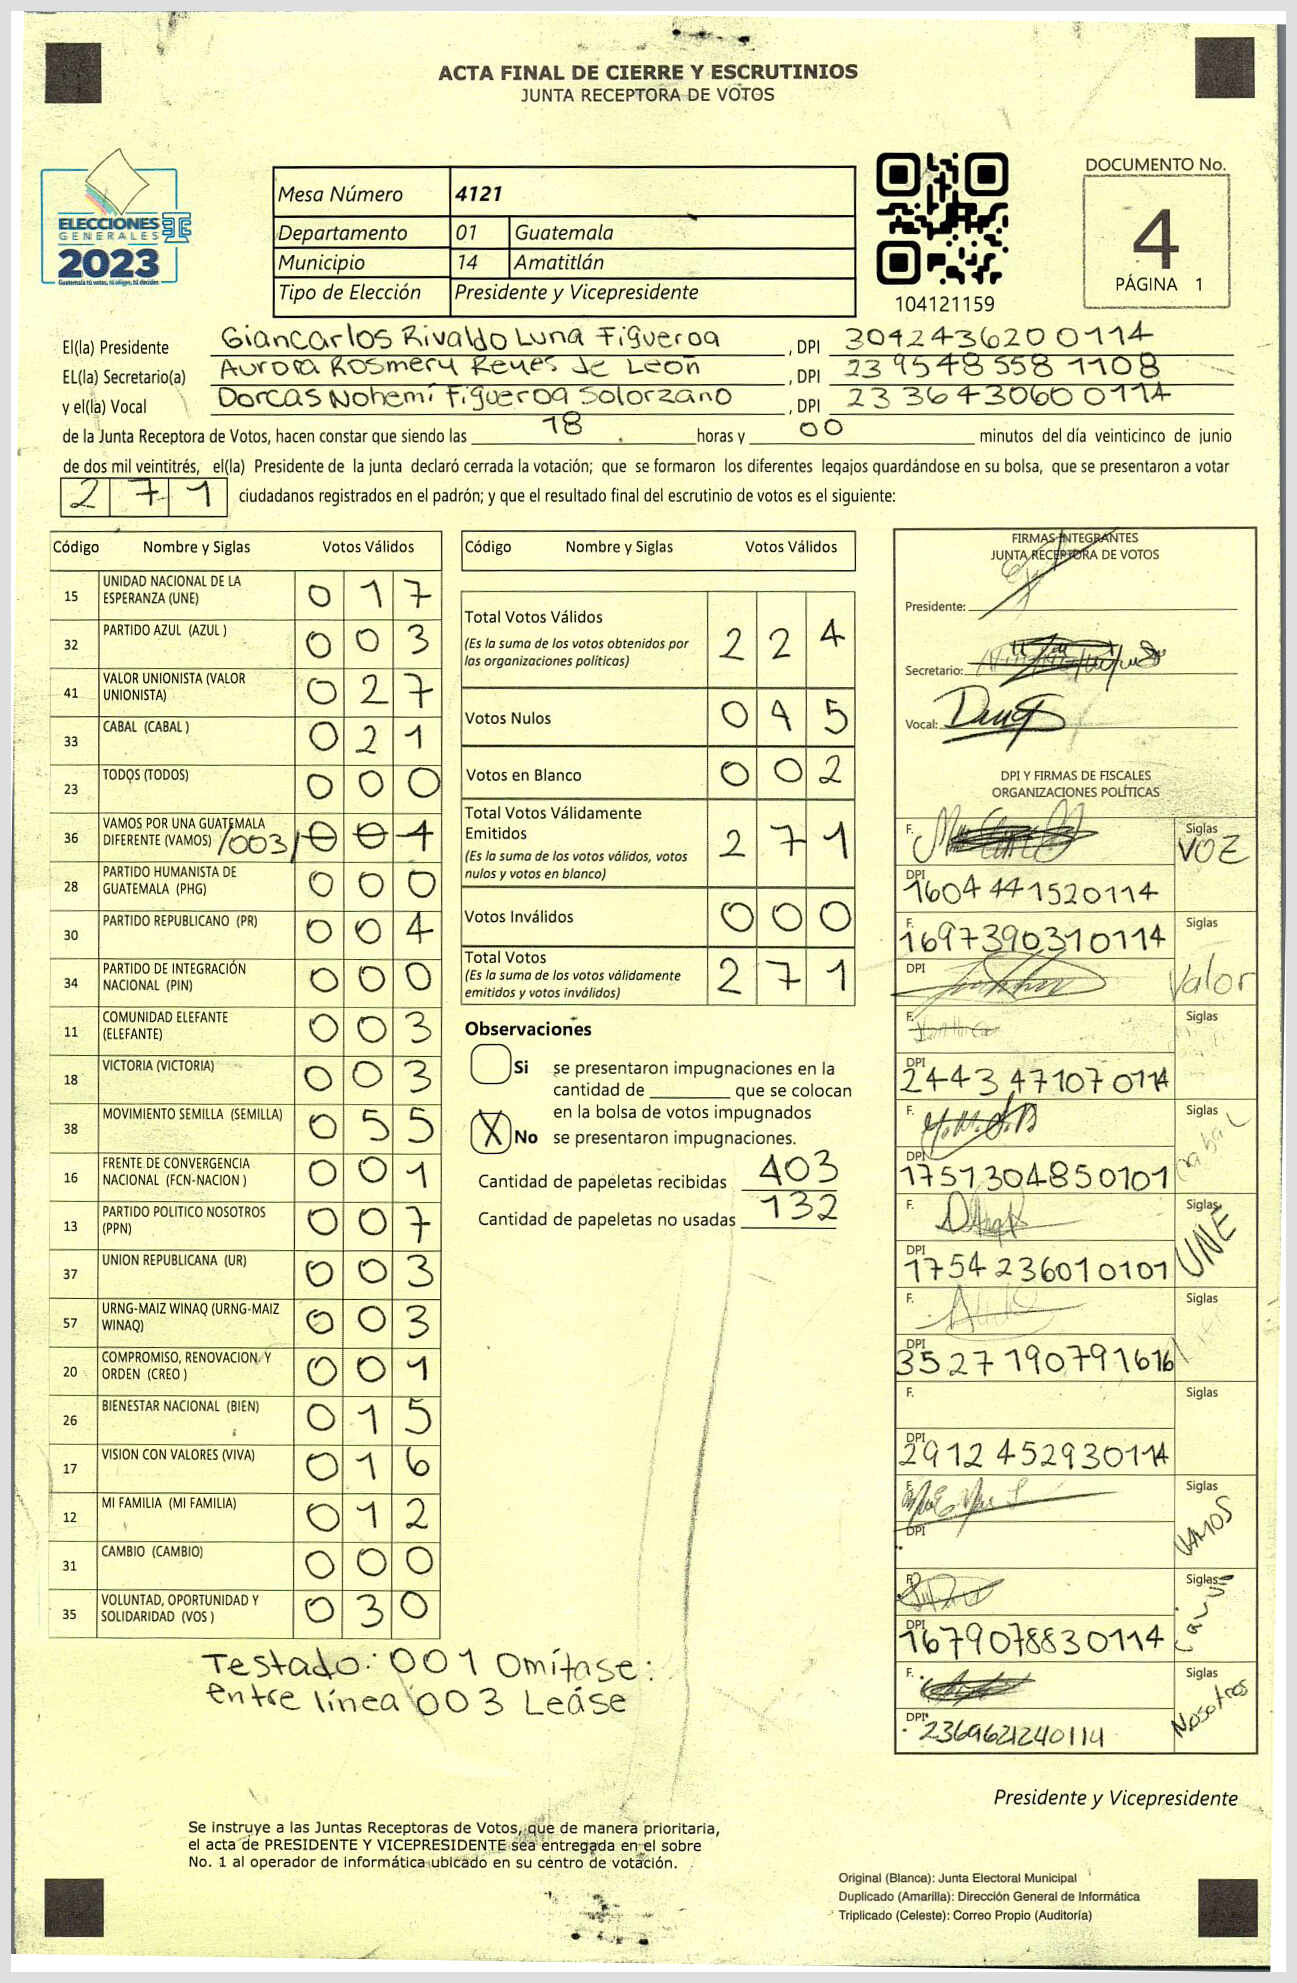 ACTA FINAL DE CIERRE Y ESCRUTINIOS
JUNTA RECEPTORA DE VOTOS
ELECCIONES
GENERALES
2023
Guatemala tú votas, tú eliges, tú decides
Mesa Número 4121
Departamento 01 Guatemala
Municipio 14 Amatitlán
Tipo de Elección Presidente y Vicepresidente
104121159
DOCUMENTO No.
4
PÁGINA 1
El(la) Presidente Giancarlos Rivaldo Luna Figueroa , DPI 3042436200114
EL(la) Secretario(a) Aurora Rosmery Reyes de León , DPI 2395485581108
y el(la) Vocal Dorcas Nohemí Figueroa Solorzano , DPI 2336430600114
de la Junta Receptora de Votos, hacen constar que siendo las 18 horas y 00 minutos del día veinticinco de junio
de dos mil veintitrés, el(la) Presidente de la junta declaró cerrada la votación; que se formaron los diferentes legajos guardándose en su bolsa, que se presentaron a votar
271 ciudadanos registrados en el padrón; y que el resultado final del escrutinio de votos es el siguiente:
Código Nombre y Siglas Votos Válidos
15 UNIDAD NACIONAL DE LA ESPERANZA (UNE) 017
32 PARTIDO AZUL (AZUL ) 003
41 VALOR UNIONISTA (VALOR UNIONISTA) 027
33 CABAL (CABAL ) 021
23 TODOS (TODOS) 000
36 VAMOS POR UNA GUATEMALA DIFERENTE (VAMOS) /003/ 001
28 PARTIDO HUMANISTA DE GUATEMALA (PHG) 000
30 PARTIDO REPUBLICANO (PR) 004
34 PARTIDO DE INTEGRACIÓN NACIONAL (PIN) 000
11 COMUNIDAD ELEFANTE (ELEFANTE) 003
18 VICTORIA (VICTORIA) 003
38 MOVIMIENTO SEMILLA (SEMILLA) 055
16 FRENTE DE CONVERGENCIA NACIONAL (FCN-NACION ) 001
13 PARTIDO POLITICO NOSOTROS (PPN) 007
37 UNION REPUBLICANA (UR) 003
57 URNG-MAIZ WINAQ (URNG-MAIZ WINAQ) 003
20 COMPROMISO, RENOVACION Y ORDEN (CREO ) 001
26 BIENESTAR NACIONAL (BIEN) 015
17 VISION CON VALORES (VIVA) 016
12 MI FAMILIA (MI FAMILIA) 012
31 CAMBIO (CAMBIO) 000
35 VOLUNTAD, OPORTUNIDAD Y SOLIDARIDAD (VOS ) 030
Testado: 001 Omítase:
entre línea 003 Leáse
Código Nombre y Siglas Votos Válidos
Total Votos Válidos 224
(Es la suma de los votos obtenidos por
las organizaciones políticas)
Votos Nulos 045
Votos en Blanco 002
Total Votos Válidamente
Emitidos 271
(Es la suma de los votos válidos, votos
nulos y votos en blanco)
Votos Inválidos 000
Total Votos 271
(Es la suma de los votos válidamente
emitidos y votos inválidos)
Observaciones
Si se presentaron impugnaciones en la
cantidad de ________ que se colocan
en la bolsa de votos impugnados
X No se presentaron impugnaciones.
Cantidad de papeletas recibidas 403
Cantidad de papeletas no usadas 132
FIRMAS INTEGRANTES
JUNTA RECEPTORA DE VOTOS
Presidente:
Secretario:
Vocal:
DPI Y FIRMAS DE FISCALES
ORGANIZACIONES POLÍTICAS
F. Siglas VOZ
DPI 1604441520114
F. 1697390310114 Siglas
DPI Valor
F. Siglas
DPI 2443471070114
F. Siglas
DPI 1751304850101
F. Siglas UNE
DPI 1754236010101
F. Siglas
DPI 3527190791616
F. Siglas
DPI 2912452930114
F. Siglas VAMOS
DPI
F. Siglas
DPI 1679078830114
F. Siglas Nosotros
DPI 2369621240114
Presidente y Vicepresidente
Se instruye a las Juntas Receptoras de Votos, que de manera prioritaria,
el acta de PRESIDENTE Y VICEPRESIDENTE sea entregada en el sobre
No. 1 al operador de informática ubicado en su centro de votación.
Original (Blanca): Junta Electoral Municipal
Duplicado (Amarilla): Dirección General de Informática
Triplicado (Celeste): Correo Propio (Auditoría)